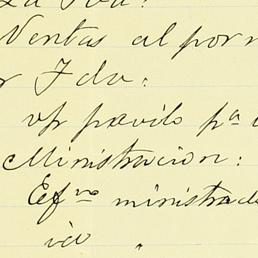 Ventas al por m
r Fdo:
vp pavilo pa
Ministracion:
Efvo ministrad
id "